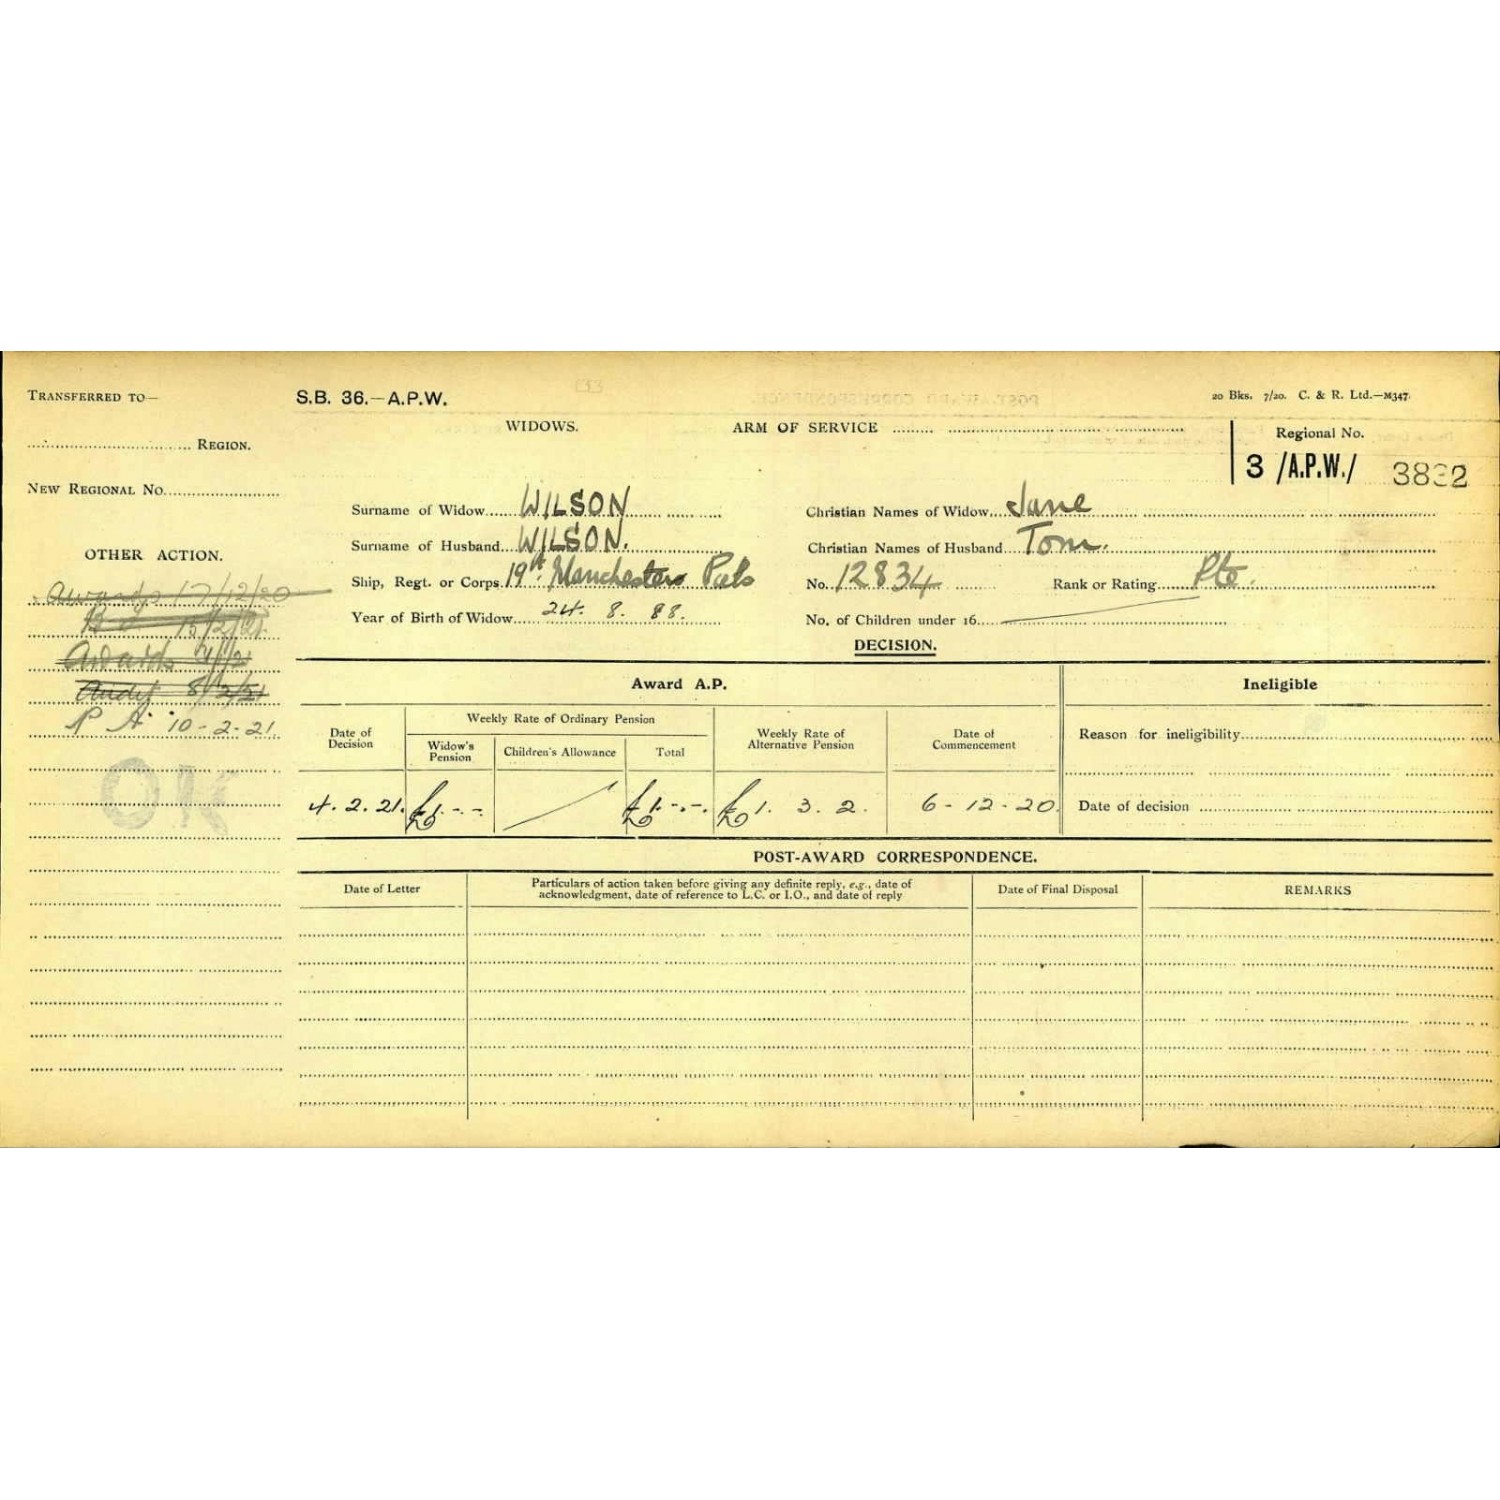 TRANSFERRED TO—
REGION.
NEW REGIONAL NO.
OTHER ACTION.
Awards 17/12/20
B 15/2/21
Awards
Audit 8/2/21
P A. 10-2-21.
OK
S.B. 36.—A.P.W.
20 Bks. 7/20. C. & R. Ltd.—M347.
WIDOWS.
ARM OF SERVICE
Regional No.
3 /A.P.W./ 3832
Surname of Widow WILSON
Christian Names of Widow Jane
Surname of Husband WILSON.
Christian Names of Husband Tom.
Ship, Regt. or Corps. 19th Manchesters Pals
No. 12834
Rank or Rating Pte.
Year of Birth of Widow 24. 8. 88.
No. of Children under 16
DECISION.
Award A.P.
Ineligible
Date of Decision
Weekly Rate of Ordinary Pension
Widow's Pension
Children's Allowance
Total
Weekly Rate of Alternative Pension
Date of Commencement
Reason for ineligibility
4. 2. 21. £1. -. - £1. -. -. £1. 3. 2. 6-12-20.
Date of decision
POST-AWARD CORRESPONDENCE.
Date of Letter
Particulars of action taken before giving any definite reply, e.g., date of
acknowledgment, date of reference to L.C. or I.O., and date of reply
Date of Final Disposal
REMARKS